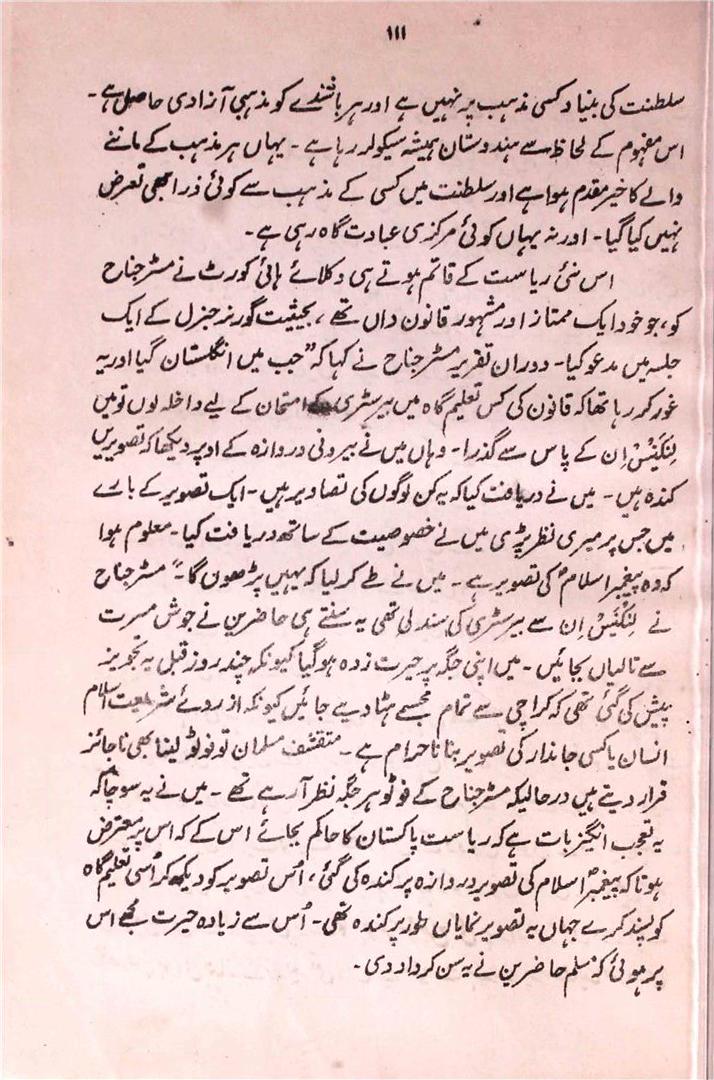 ۱۱۱
سلطنت کی بنیاد کسی مذہب پر نہیں ہے اور ہر باشندے کو مذہبی آزادی حاصل ہے۔
اس مفہوم کے لحاظ سے ہندوستان ہمیشہ سیکولر رہا ہے۔ یہاں ہر مذہب کے ماننے
والے کا خیر مقدم ہوا ہے اور سلطنت میں کسی کے مذہب سے کوئی ذرا بھی تعرض
نہیں کیا گیا۔ اور نہ یہاں کوئی مرکزی عبادت گاہ رہی ہے۔
اس نئی ریاست کے قائم ہوتے ہی وکلائے ہائی کورٹ نے مسٹر جناح
کو، جو خود ایک ممتاز اور مشہور قانون داں تھے، بحیثیت گورنر جنرل کے ایک
جلسہ میں مدعو کیا۔ دوران تقریر مسٹر جناح نے کہا کہ "جب میں انگلستان گیا اور یہ
غور کر رہا تھا کہ قانون کی کس تعلیم گاہ میں بیرسٹری کے امتحان کے لیے داخلہ لوں تو میں
لِنکَینْس اِن کے پاس سے گذرا۔ وہاں میں نے بیرونی دروازہ کے اوپر دیکھا کہ تصویریں
کندہ ہیں۔ میں نے دریافت کیا کہ یہ کن لوگوں کی تصاویر ہیں۔ ایک تصویر کے بارے
میں جس پر میری نظر پڑی میں نے خصوصیت کے ساتھ دریافت کیا۔ معلوم ہوا
کہ وہ پیغمبر اسلامؐ کی تصویر ہے۔ میں نے طے کر لیا کہ یہیں پڑھوں گا۔" مسٹر جناح
نے لِنکَینْس اِن سے بیرسٹری کی سند لی تھی یہ سنتے ہی حاضرین نے جوش مسرت
سے تالیاں بجائیں۔ میں اپنی جگہ پر حیرت زدہ ہو گیا کیونکہ چند روز قبل یہ تجویز
پیش کی گئی تھی کہ کراچی سے تمام مجسمے ہٹا دیے جائیں کیونکہ از روئے شریعت اسلام
انسان یا کسی جاندار کی تصویر بنانا حرام ہے۔ متقشف مسلمان تو فوٹو لینا بھی ناجائز
قرار دیتے ہیں درحالیکہ مسٹر جناح کے فوٹو ہر جگہ نظر آ رہے تھے۔ میں نے یہ سوچا کہ
یہ تعجب انگیز بات ہے کہ ریاست پاکستان کا حاکم بجائے اس کے کہ اس پر معترض
ہوتا کہ پیغمبرؐ اسلام کی تصویر دروازہ پر کندہ کی گئی، اُس تصویر کو دیکھ کر اُسی تعلیم گاہ
کو پسند کرے جہاں یہ تصویر نمایاں طور پر کندہ تھی۔ اُس سے زیادہ حیرت مجھے اس
پر ہوئی کہ مسلم حاضرین نے یہ سن کر داد دی۔